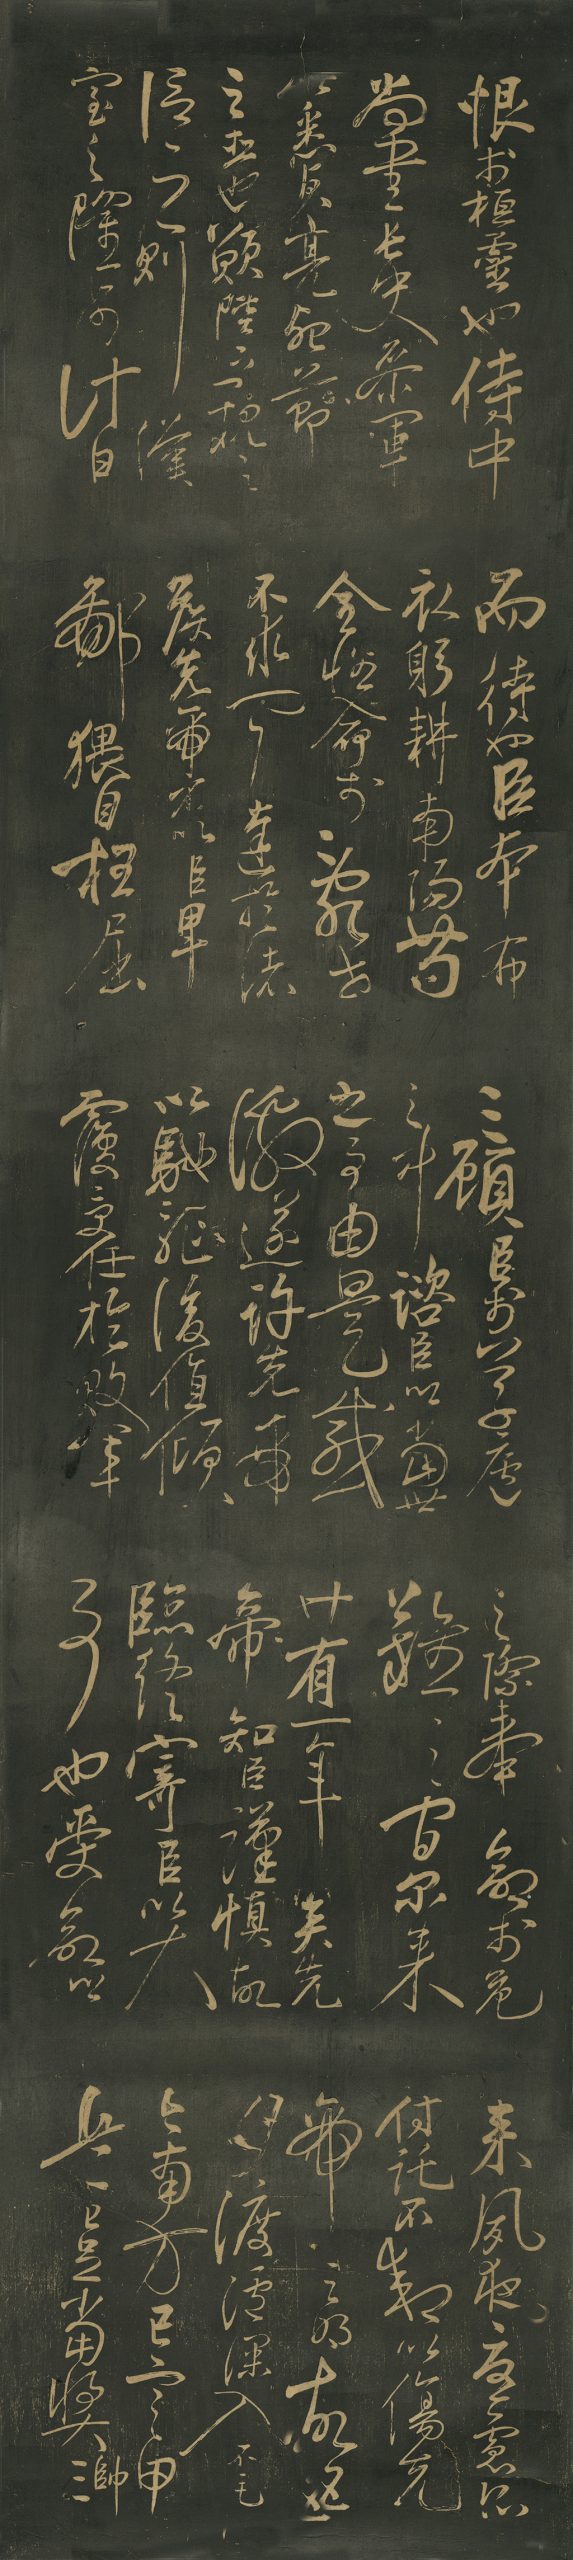 恨於桓靈也侍中
尚書長史參軍
此悉貞亮死節
之臣也願陛下親之
信之則漢
室之隆可計日
而待也臣本布
衣躬耕南陽苟
全性命於亂世
不求聞達於諸
侯先帝不以臣卑
鄙猥自枉屈
三顧臣於草廬
之中諮臣以當世
之事由是感
激遂許先帝
以驅馳後值傾
覆受任於敗軍
之際奉命於危
難之間爾來
廿有一年矣先
帝知臣謹慎故
臨終寄臣以大
事也受命以
來夙夜憂慮恐
付託不效以傷先
帝之明故五
月渡瀘深入不毛
今南方已定甲
兵已足當獎帥三